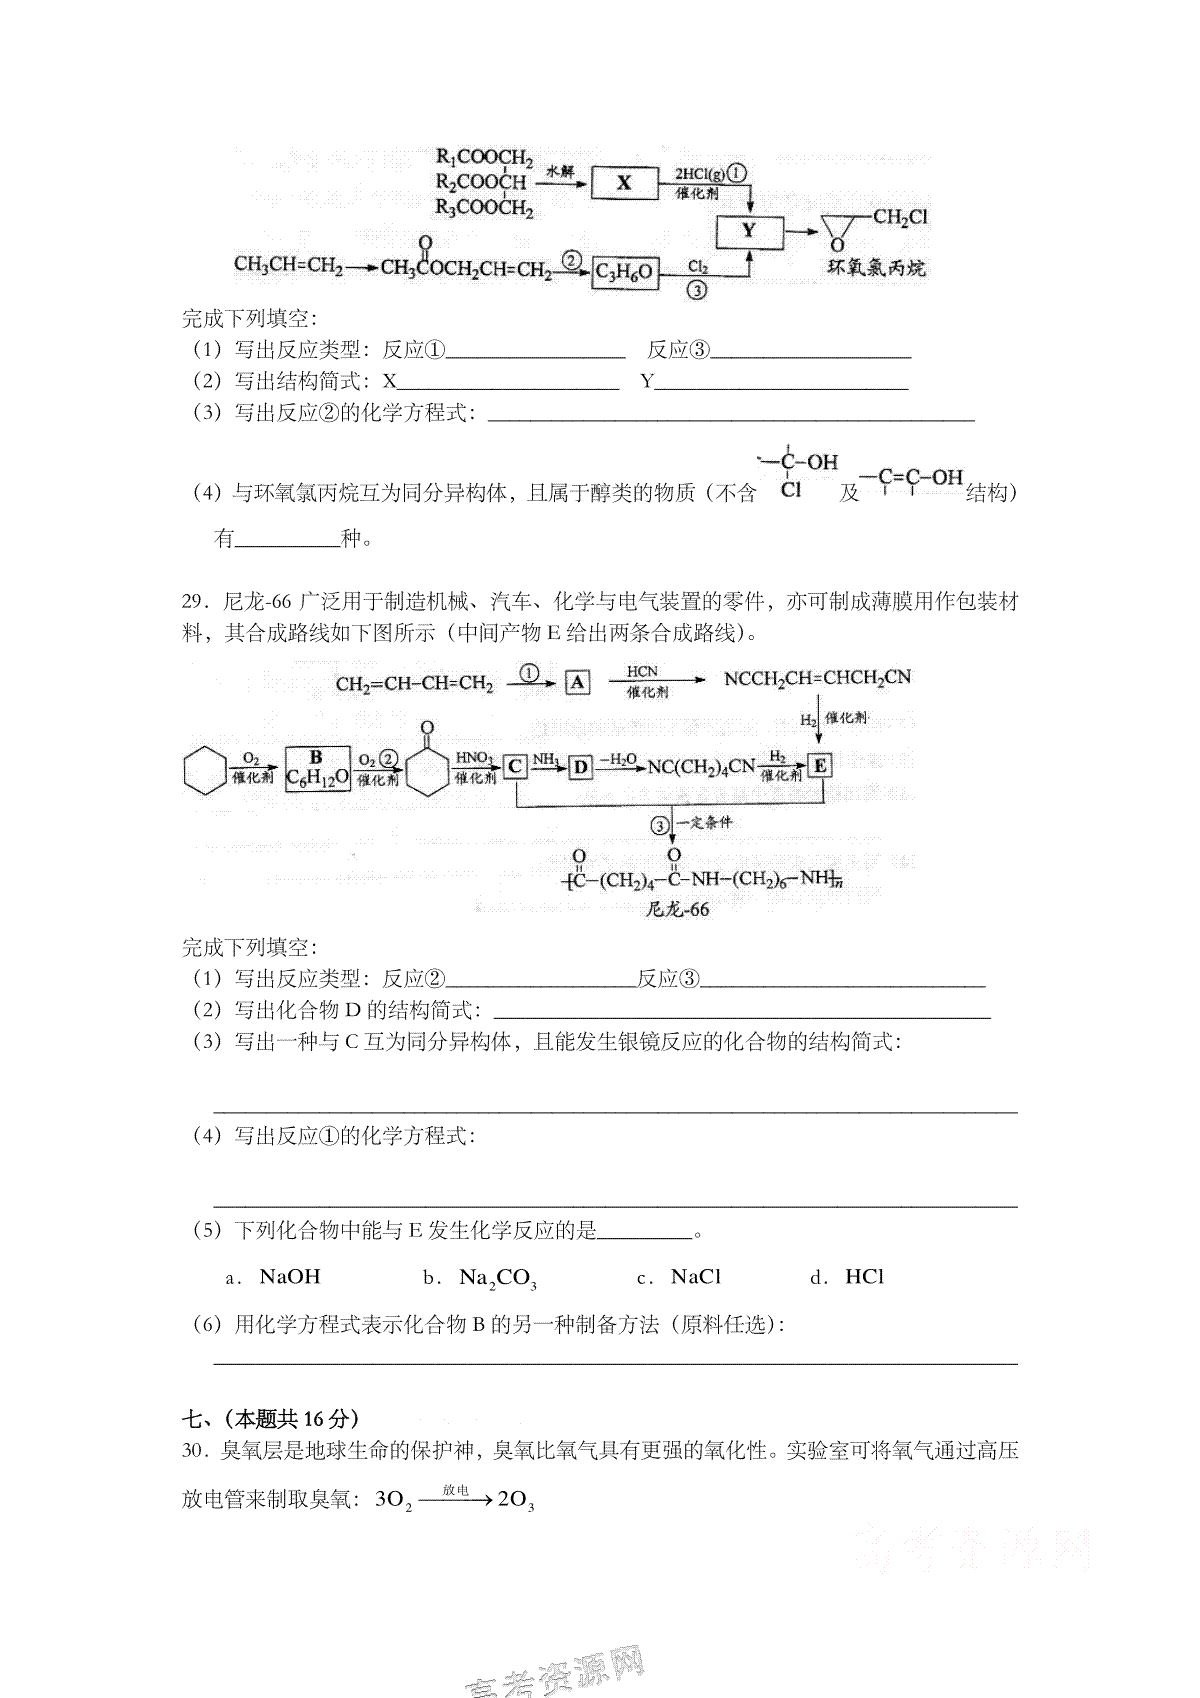 R₁COOCH₂
R₂COOCH 水解 X 2HCl(g)① 催化剂
R₃COOCH₂
Y CH₂Cl
O
环氧氯丙烷
CH₃CH=CH₂ CH₃COCH₂CH=CH₂ ② C₃H₆O Cl₂ ③
O
完成下列填空：
（1）写出反应类型：反应①________ 反应③________
（2）写出结构简式：X________ Y________
（3）写出反应②的化学方程式：________
（4）与环氧氯丙烷互为同分异构体，且属于醇类的物质（不含 —C—OH Cl 及 —C=C—OH 结构）
有________种。
29．尼龙-66 广泛用于制造机械、汽车、化学与电气装置的零件，亦可制成薄膜用作包装材
料，其合成路线如下图所示（中间产物 E 给出两条合成路线）。
CH₂=CH-CH=CH₂ ① A HCN 催化剂 NCCH₂CH=CHCH₂CN
H₂ 催化剂
O₂ 催化剂 B C₆H₁₂O O₂ ② 催化剂 O HNO₃ 催化剂 C NH₃ D -H₂O NC(CH₂)₄CN H₂ 催化剂 E
③ 一定条件
O O
[C-(CH₂)₄-C-NH-(CH₂)₆-NH]n
尼龙-66
完成下列填空：
（1）写出反应类型：反应②________反应③________
（2）写出化合物 D 的结构简式：________
（3）写出一种与 C 互为同分异构体，且能发生银镜反应的化合物的结构简式：
________
（4）写出反应①的化学方程式：
________
（5）下列化合物中能与 E 发生化学反应的是________。
a．NaOH b．Na₂CO₃ c．NaCl d．HCl
（6）用化学方程式表示化合物 B 的另一种制备方法（原料任选）：
________
七、（本题共 16 分）
30．臭氧层是地球生命的保护神，臭氧比氧气具有更强的氧化性。实验室可将氧气通过高压
放电管来制取臭氧：3O₂ —放电→ 2O₃
高考资源网
高考资源网